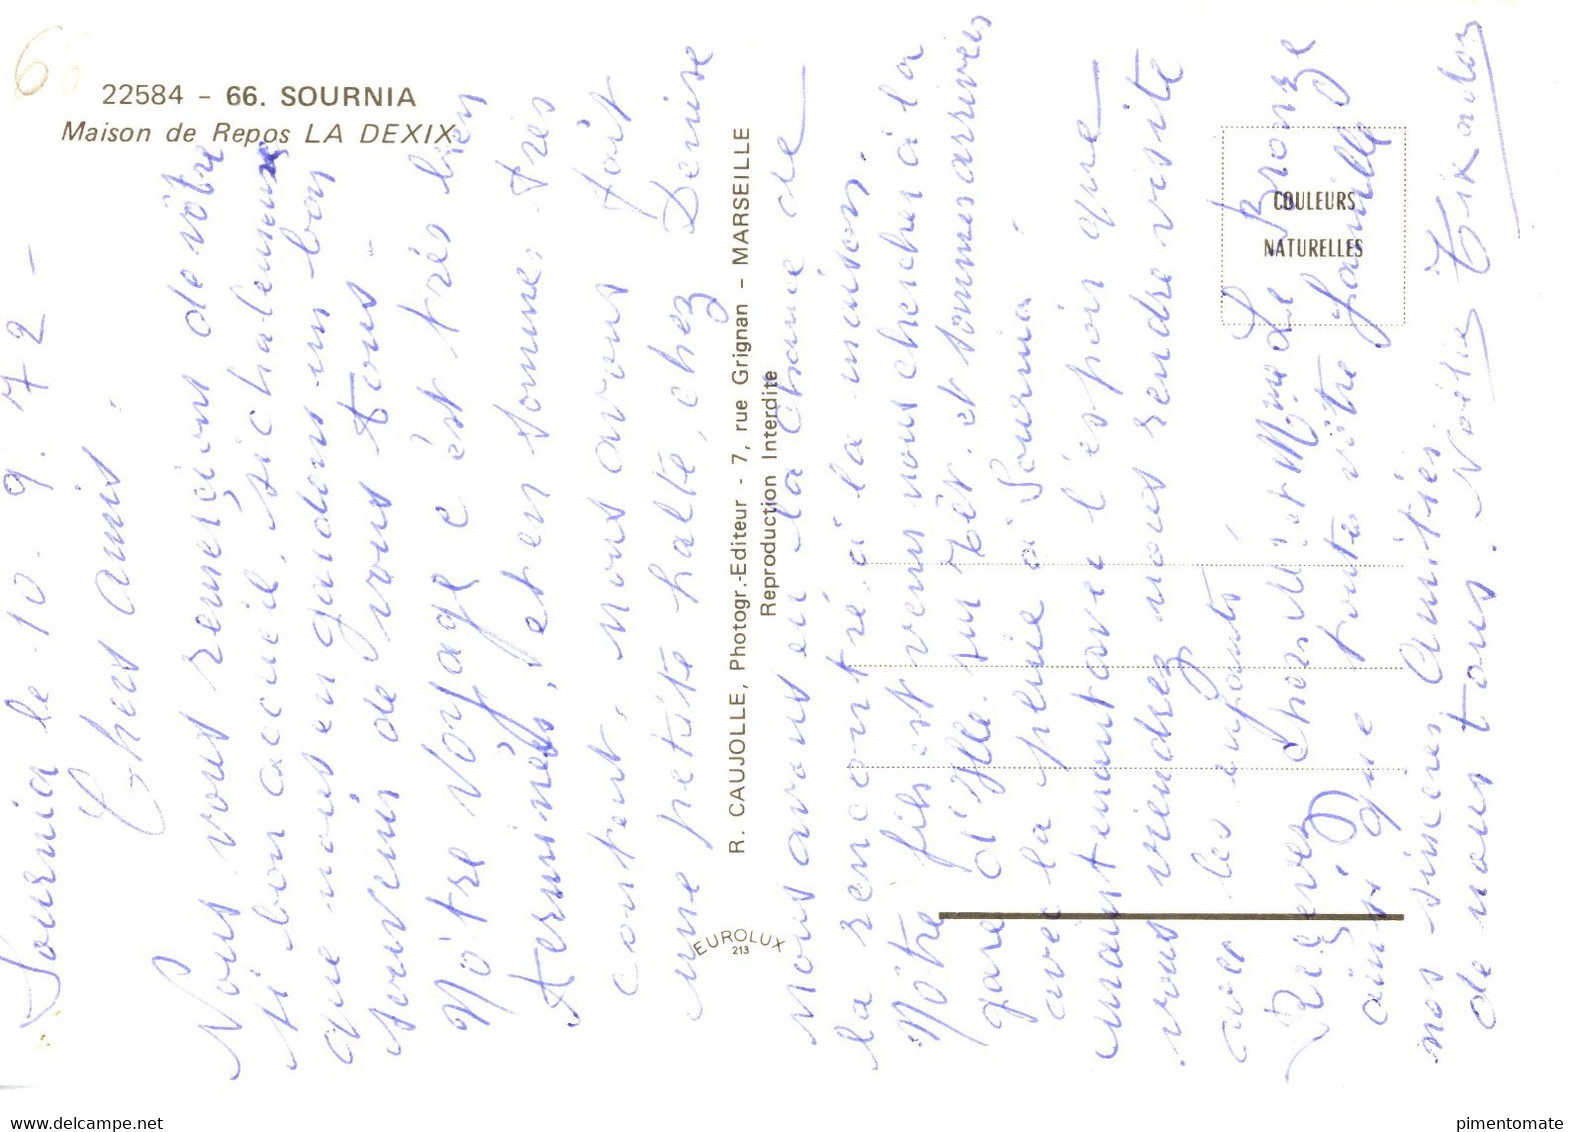 66
22584 - 66. SOURNIA
Maison de Repos LA DEXIX
Sournia le 10.9.72 -
Chers amis.
Nous vous remerçions de vôtre
si bon accueil, si chaleureux
que nous en gardons un bon
souvenir de vous tous -
Nôtre voyage c'ést trés bien
terminés, et en somme. trés
content. nous avons fait
une petite halte, chez Denise
R. CAUJOLLE, Photogr.-Editeur - 7, rue Grignan - MARSEILLE
Reproduction Interdite
EUROLUX
213
COULEURS
NATURELLES
nous avons eu la chance de
la rencontré à la maison.
Nôtre fils est venu nous cherché à la
gare d'Ille. sur Têt. et sommes arrivés
avec la pluie à Sournia.
maintenant avec l'éspoir que
vous viendrez nous rendre visite
avec les enfants.
Recevez chers Mr et Mme de
ainsi que toute vôtre famille
nos sincères Amitiés
de nous tous. Noëlie
pimentomate
www.delcampe.net